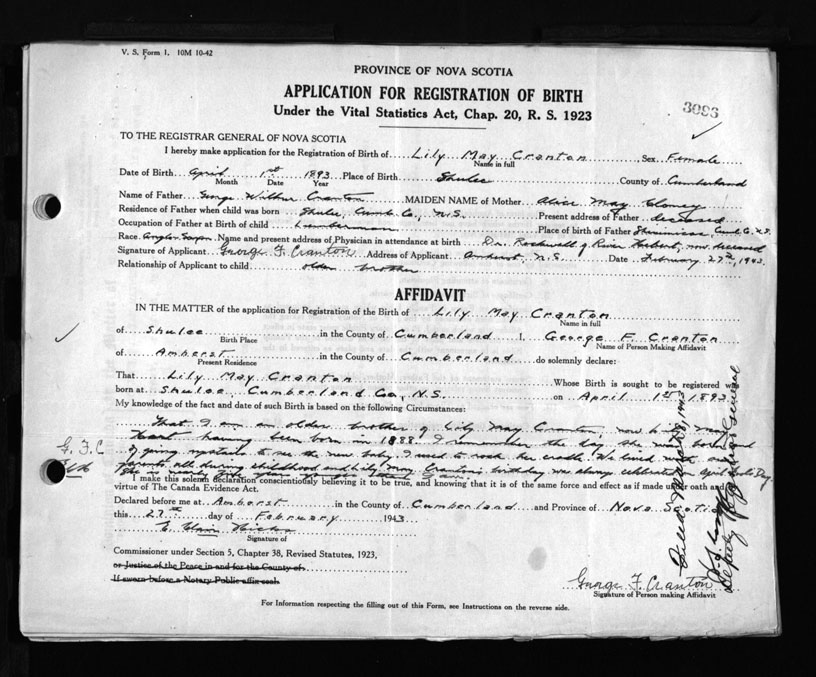 V. S. Form 1. 10M 10-42
PROVINCE OF NOVA SCOTIA
APPLICATION FOR REGISTRATION OF BIRTH
3093
Under the Vital Statistics Act, Chap. 20, R. S. 1923
TO THE REGISTRAR GENERAL OF NOVA SCOTIA
I hereby make application for the Registration of Birth of Lily May Cranton Sex Female
Name in full
Date of Birth April 1st 1893 Place of Birth Shulee County of Cumberland
Month Date Year
Name of Father George Wilbur Cranton MAIDEN NAME of Mother Alice May
Residence of Father when child was born Shulee, Cumb. Co., N.S. Present address of Father deceased
Occupation of Father at Birth of child Lumberman Place of birth of Father
Race Anglo-Saxon Name and present address of Physician in attendance at birth Dr. Rockwell of River Hebert, now deceased
Signature of Applicant George F. Cranton Address of Applicant Amherst, N.S. Date February 27th, 1943
Relationship of Applicant to child older brother
AFFIDAVIT
IN THE MATTER of the application for Registration of the Birth of Lily May Cranton
Name in full
of Shulee in the County of Cumberland I, George F. Cranton
Birth Place Name of Person Making Affidavit
of Amherst in the County of Cumberland do solemnly declare:
Present Residence
That Lily May Cranton Whose Birth is sought to be registered was
born at Shulee, Cumberland Co., N.S. on April 1st 1893
My knowledge of the fact and date of such Birth is based on the following Circumstances:
That I am an older brother of Lily May Cranton, now Lily May
Hart having been born in 1888. I remember the day she was born and
of going upstairs to see the new baby. I used to rock her cradle. We lived with our
parents all during childhood and Lily May Cranton's birthday was always celebrated on April Fools Day.
She is nearly five years younger than I am.
G. F. C
I make this solemn declaration conscientiously believing it to be true, and knowing that it is of the same force and effect as if made under oath and by
virtue of The Canada Evidence Act.
Declared before me at Amherst in the County of Cumberland and Province of Nova Scotia
this 27th day of February 1943
Signature of
Commissioner under Section 5, Chapter 38, Revised Statutes, 1923,
or Justice of the Peace in and for the County of
If sworn before a Notary Public affix seal.
George F. Cranton
Signature of Person making Affidavit
For Information respecting the filling out of this Form, see Instructions on the reverse side.
Deputy Registrar General